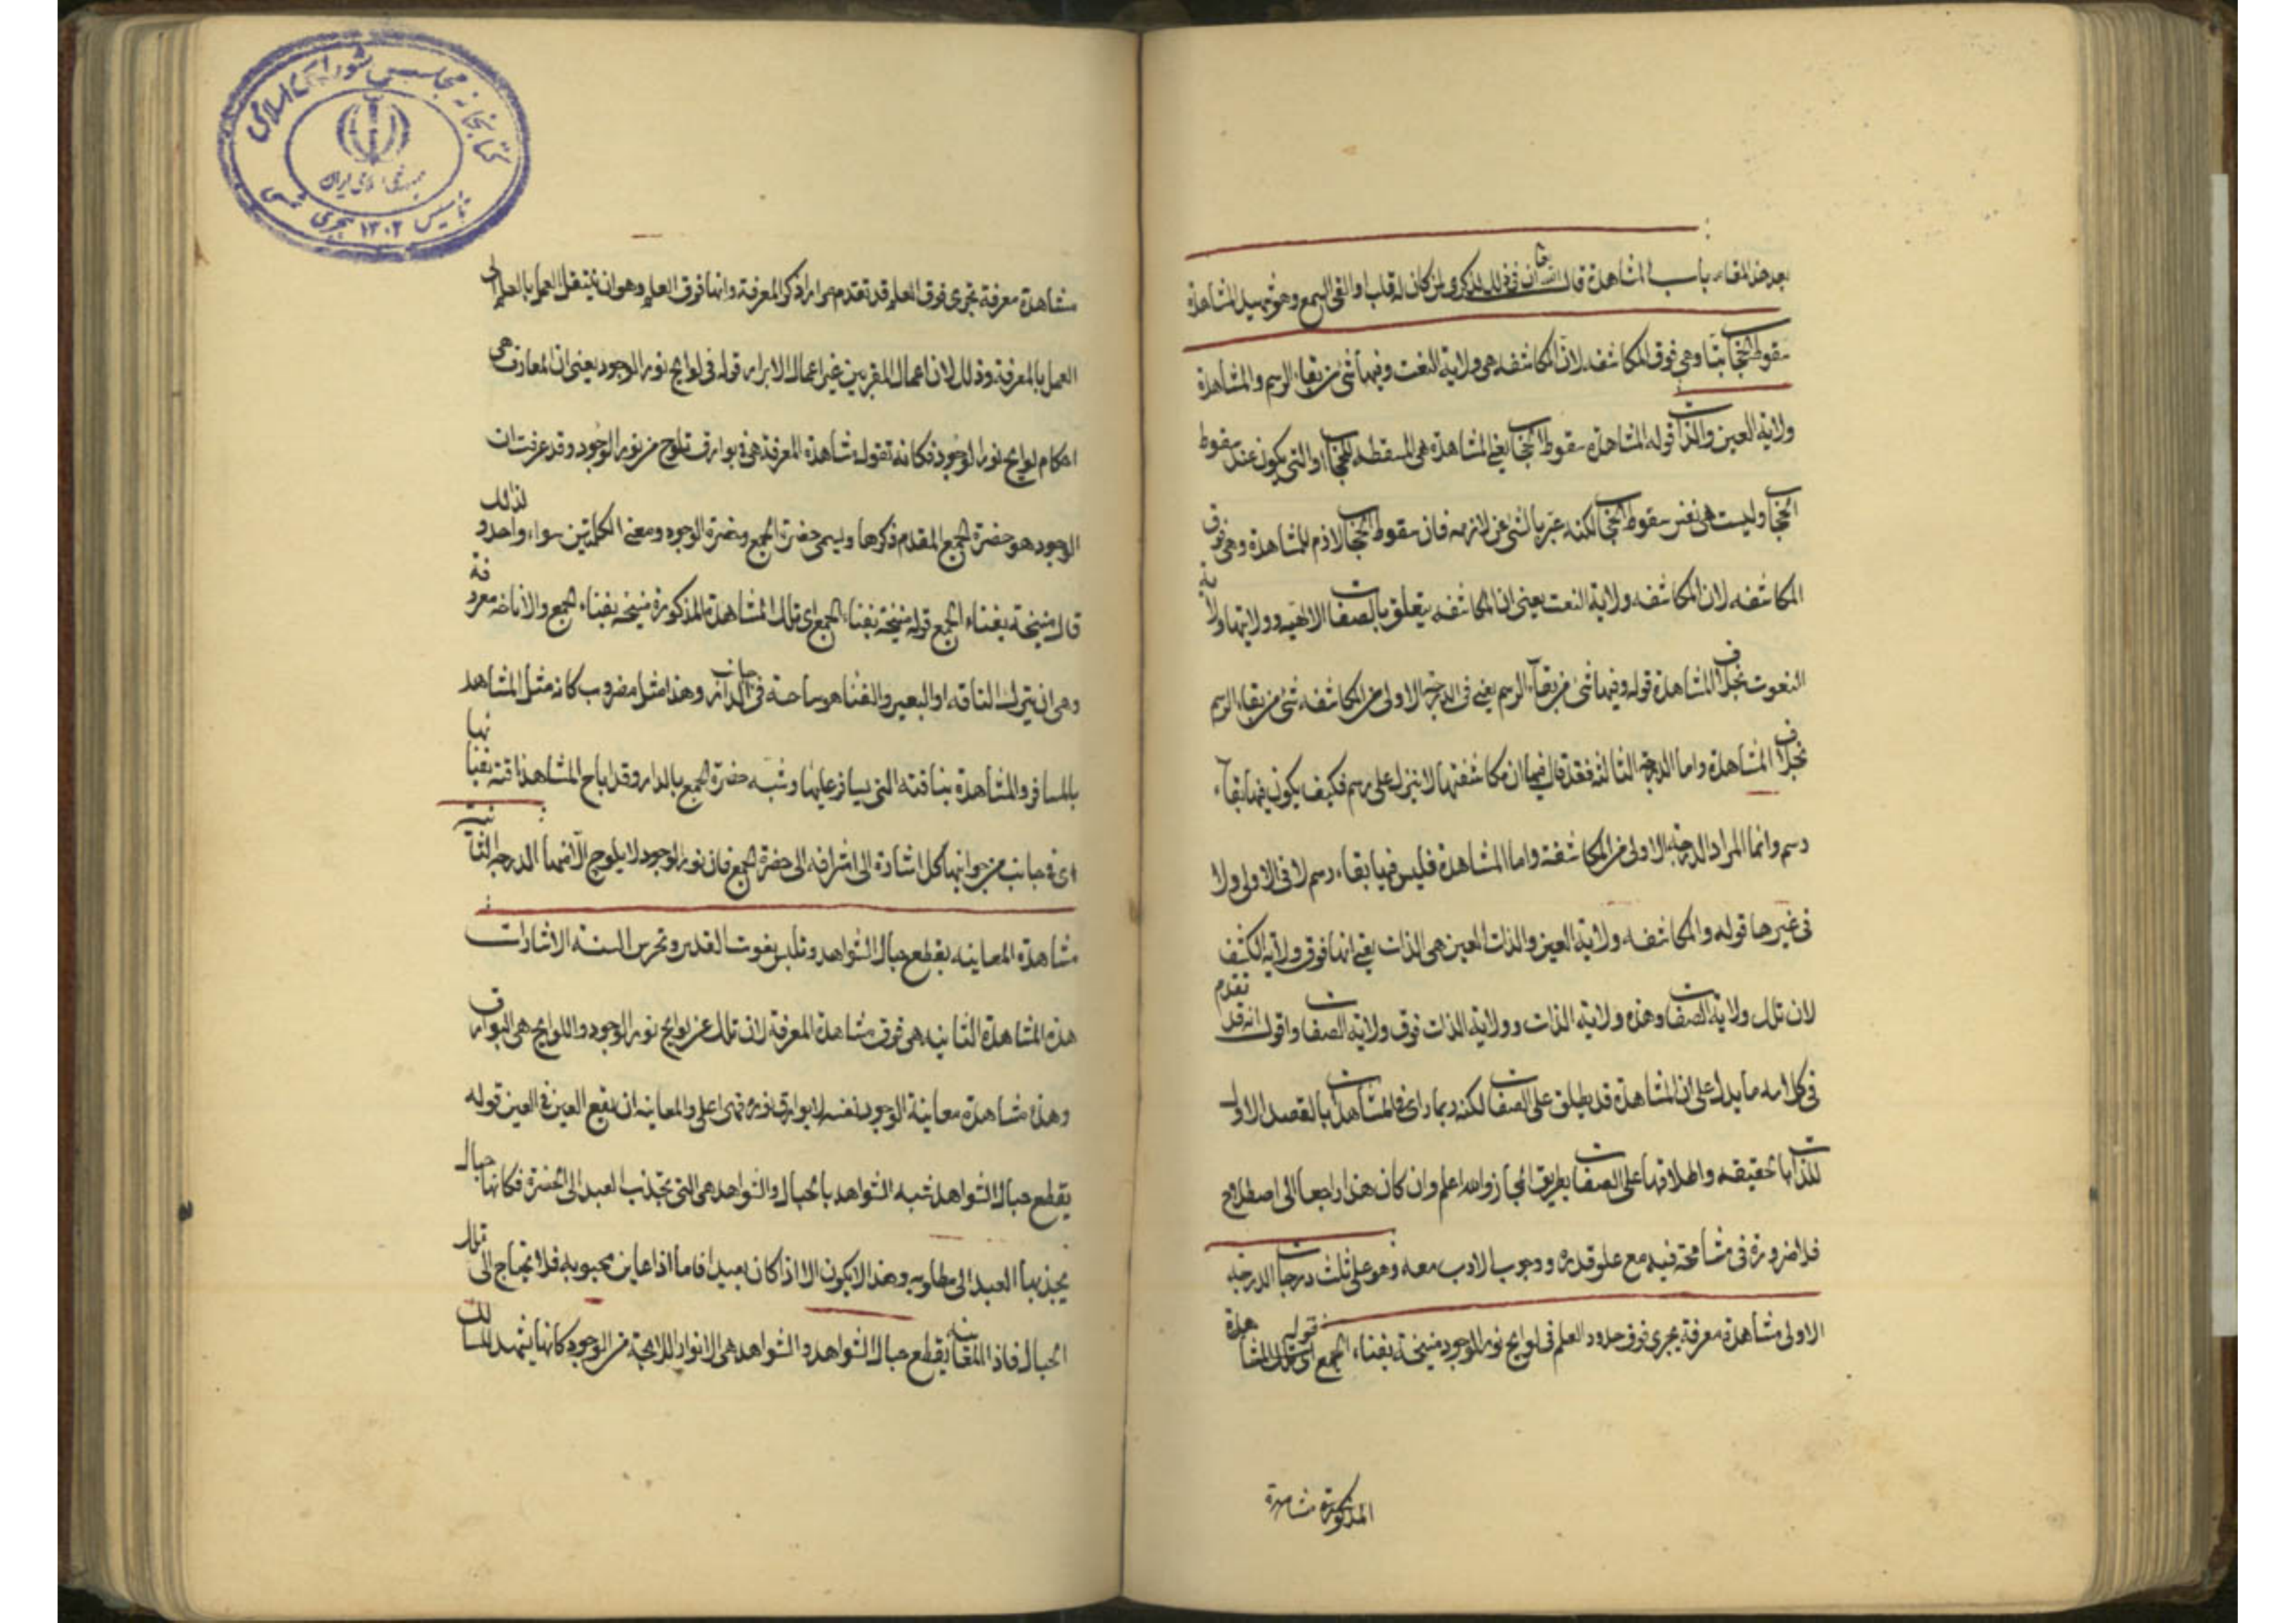 بعد هذا المقام باب المشاهدة قال الله تعالى ان فى ذلك لذكرى لمن كان له قلب او القى السمع وهو شهيد المشاهدة
سقوط الحجاب بتا وهى فوق المكاشفه لان المكاشفه هى ولاية النعت وفيها شئ من بقاء الرسم والمشاهدة
ولاية العين والذات قوله المشاهده سقوط الحجاب يعنى المشاهدة هى المسقطه للحجاب او التى يكون عندها سقوط
الحجاب وليست هى نفس سقوط الحجاب لكنه عبر بالشئ عن لازمه فان سقوط الحجاب لازم للمشاهدة وهى فوق
المكاشفه لان المكاشفه ولاية النعت يعنى ان المكاشفه يتعلق بالصفات الالهيه وولايتها ولاية
النعوت بخلاف المشاهدة قوله وفيها شئ من بقاء الرسم يعنى فى الدرجة الاولى من المكاشفه شئ من بقاء الرسم
بخلاف المشاهدة واما الدرجة الثالثه فقد قال فيها ان مكاشفتها لا تنزل على رسم فكيف يكون فيها بقاء
رسم وانما المراد الدرجة الاولى من المكاشفة واما المشاهدة فليس فيها بقاء رسم لا فى الاولى ولا
فى غيرها قوله والمكاشفه ولاية العين والذات العين هى الذات يعنى انها فوق ولاية الكشف
لان تلك ولاية الصفات وهذه ولاية الذات وولاية الذات فوق ولاية الصفات واقول انه قد تقدم
فى كلامه ما يدل على ان المشاهدة قد يطلق على الصفات لكنه ربما راى المشاهدة بالقصد الاول
للذات حقيقه واطلاقها على الصفات بطريق المجاز والله اعلم وان كان هذا راجعا الى اصطلاح
فلا ضرورة فى مشاححة فيه مع علو قدره ووجوب الادب معه وهو على ثلث درجات الدرجة
الاولى مشاهدة معرفة يجرى فوق حدود العلم فى لوايح نور الوجود منيخة بفناء الجمع قوله اى تلك المشاهدة
المذكورة مشاهدة
مشاهدة معرفة تجرى فوق العلم قد تقدم مرارا ذكر المعرفة وانها فوق العلم وهو ان ينتقل العمل بالعلم الى
العمل بالمعرفة وذلك لان اعمال المقربين غير اعمال الابرار قوله فى لوايح نور الوجود يعنى ان المعارف هى
احكام لوايح نور الوجود فكانه تقول مشاهدة المعرفة هى بوارق تلوح من نور الوجود وقد عرفت ان
الوجود هو حضرة الجمع المقدم ذكرها ويسمى حضرة الجمع وحضرة الوجود ومعنى الكلمتين سواء واحد ولذلك
قال منيخة بفناء الجمع قوله منيخة بفناء الجمع اى تلك المشاهدة المذكورة منيخه بفناء الجمع والاناخه معروفة
وهى ان يترك الناقه او البعير والفنا هو ساحة فى جانب الدار وهذا مثل مضروب كانه مثل المشاهد
بالمسافر والمشاهدة بناقته التى يسافر عليها وشبه حضرة الجمع بالدار وقد اناخ المشاهد ناقته بفنائها
اى فى جانب من جوانبها كل اشارة الى اشرافه الى حضرة الجمع فان نور الوجود لا يلوح الا منها الدرجه الثانية
مشاهدة المعاينه يقطع حبال الشواهد وتلبس نعوت القدس وتخرس السنه الاشارات
هذه المشاهدة الثانيه هى فوق مشاهدة المعرفة لان تلك عن لوايح نور الوجود واللوايح هى البوارق
وهذه مشاهدة معاينة الوجود نفسه لا بوارق نوره فهى اعلى والمعاينه ان يقع العين فى العين قوله
يقطع حبال الشواهد شبه الشواهد بالحبال والشواهد هى التى يجذب العبد الى الحضرة فكانها حبال
يجذب بها العبد الى مطلوبه وهذا لا يكون الا اذا كان بعيدا فاما اذا عاين محبوبه فلا يحتاج الى تلك
الحبال فاذا المعاينه يقطع حبال الشواهد والشواهد هى الانوار اللايحة من الوجود كانها يشهد للسالك
كتابخانه مجلس شوراى اسلامى
جمهورى اسلامى ايران
تاسيس ۱۳۰۲ هجرى شمسى